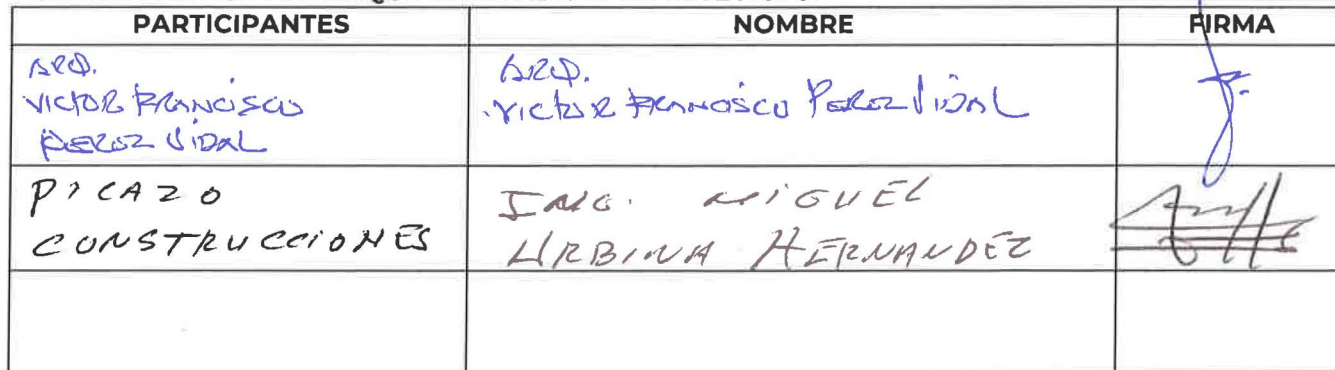 PARTICIPANTES NOMBRE FIRMA
ARQ.
VICTOR FRANCISCO
PEREZ VIDAL
ARQ.
VICTOR FRANCISCO PEREZ VIDAL
PICAZO
CONSTRUCCIONES
ING. MIGUEL
URBINA HERNANDEZ